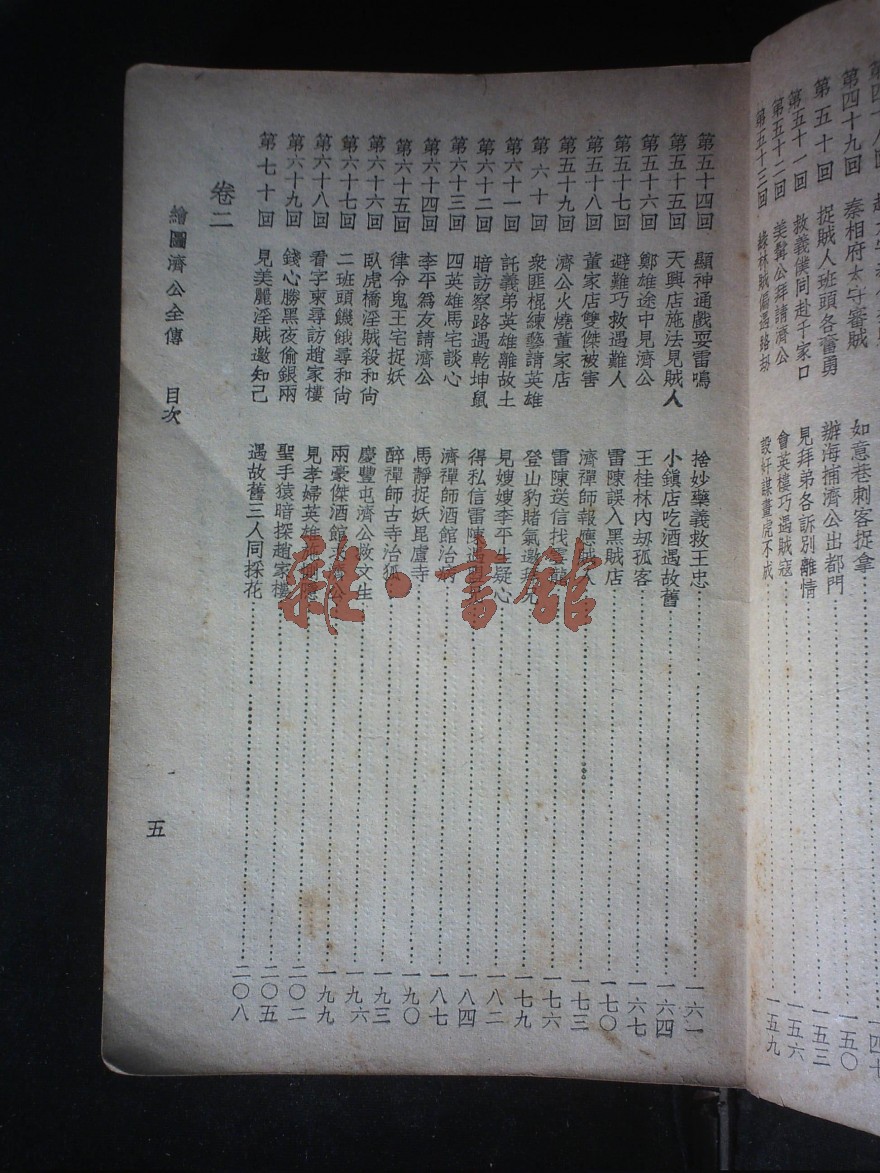 第四十九回 秦相府太守審賊 如意巷刺客捉拿 一五〇
第五十回 捉賊人班頭各奮勇 辦海捕濟公出都門 一五三
第五十一回 救義僕同赴千家口 見拜弟各訴別離情 一五六
第五十二回 美髯公拜請濟公 會英樓巧遇賊寇 一五九
第五十三回 綠林賊偏遇路劫 設奸謀畫虎不成
第五十四回 顯神通戲耍雷鳴 捨妙藥義救王忠 一六一
第五十五回 天興店施法見賊人 小鎮店吃酒遇故舊 一六四
第五十六回 鄭雄途中見濟公 王桂林內刼孤客 一六七
第五十七回 避難巧救遇難人 雷陳誤入黑賊店 一七〇
第五十八回 董家店雙傑被害 濟禪師報應賊人 一七三
第五十九回 濟公火燒董家店 雷陳送信找 一七六
第六十回 衆匪棍練藝請英雄 登山豹賭氣邀 一七九
第六十一回 託義弟英雄離故土 見嫂嫂李平生疑心 一八二
第六十二回 暗訪察路遇乾坤鼠 得私信雷陳 一八四
第六十三回 四英雄馬宅談心 濟禪師酒館治 一八七
第六十四回 李平爲友請濟公 馬靜捉妖毘盧寺 一九〇
第六十五回 律令鬼王宅捉妖 醉禪師古寺治狐 一九三
第六十六回 臥虎橋淫賊殺和尙 慶豐屯濟公救文生 一九六
第六十七回 二班頭饑餓尋和尙 兩豪傑酒館 一九九
第六十八回 看字柬尋訪趙家樓 見孝婦英雄 二〇二
第六十九回 錢心勝黑夜偷銀兩 聖手猿暗探趙家樓 二〇五
第七十回 見美麗淫賊邀知己 遇故舊三人同採花 二〇八
卷二
繪圖濟公全傳 目次
五
雜·書館